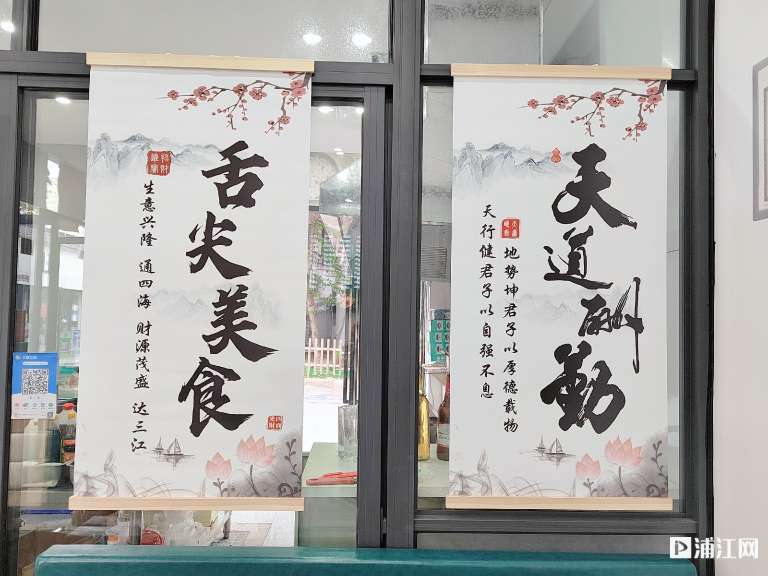 舌尖美食
生意兴隆 通四海 财源茂盛 达三江
天道酬勤
地势坤君子以厚德载物
天行健君子以自强不息
浦江网